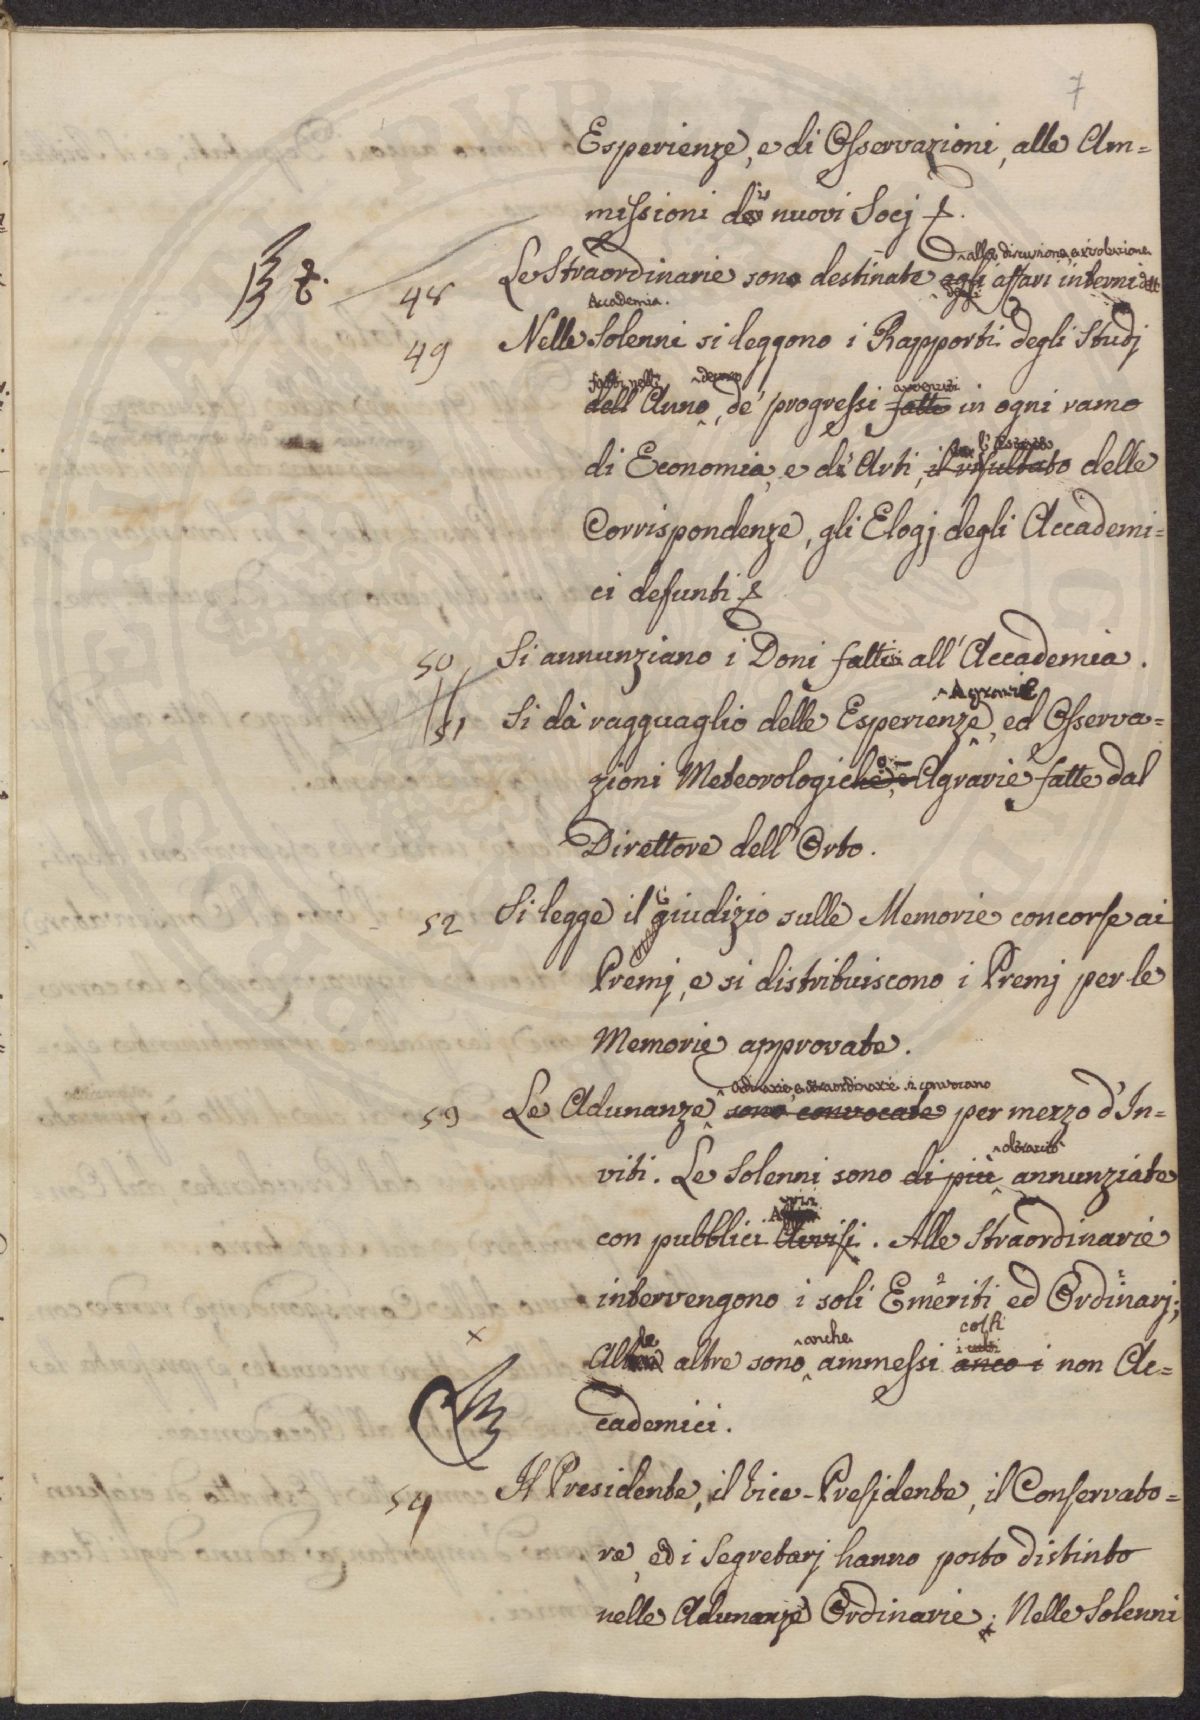 7
Esperienze, e di Osservazioni, alle Am=
missioni de' nuovi Socj &.
alla discussione, e risoluzione
48 Le Straordinarie sono destinate agli affari interni dell'
Accademia.
49 Nelle Solenni si leggono i Rapporti degli Studj
fatti nell' avvenuti
dell'Anno, de' progressi fatti in ogni ramo
di Economia, e di Arti, il risultato delle
Corrispondenze, gli Elogj degli Accademi=
ci defunti &
50 Si annunziano i Doni fatti all'Accademia.
Agrarie
51 Si dà ragguaglio delle Esperienze, ed Osserva=
zioni Meteorologiche, e Agrarie fatte dal
Direttore dell'Orto.
52 Si legge il giudizio sulle Memorie concorse ai
Premj, e si distribuiscono i Premj per le
Memorie approvate.
ordinarie, e straordinarie si convocano
53 Le Adunanze sono convocate per mezzo d'In=
viti. Le Solenni sono di più annunziate
con pubblici Avvisi. Alle Straordinarie
intervengono i soli Emeriti, ed Ordinarj;
anche colti
Alle altre sono ammessi anco i non Ac=
cademici.
54 Il Presidente, il Vice-Presidente, il Conservato=
re, ed i Segretarj hanno posto distinto
nelle Adunanze Ordinarie; Nelle Solenni